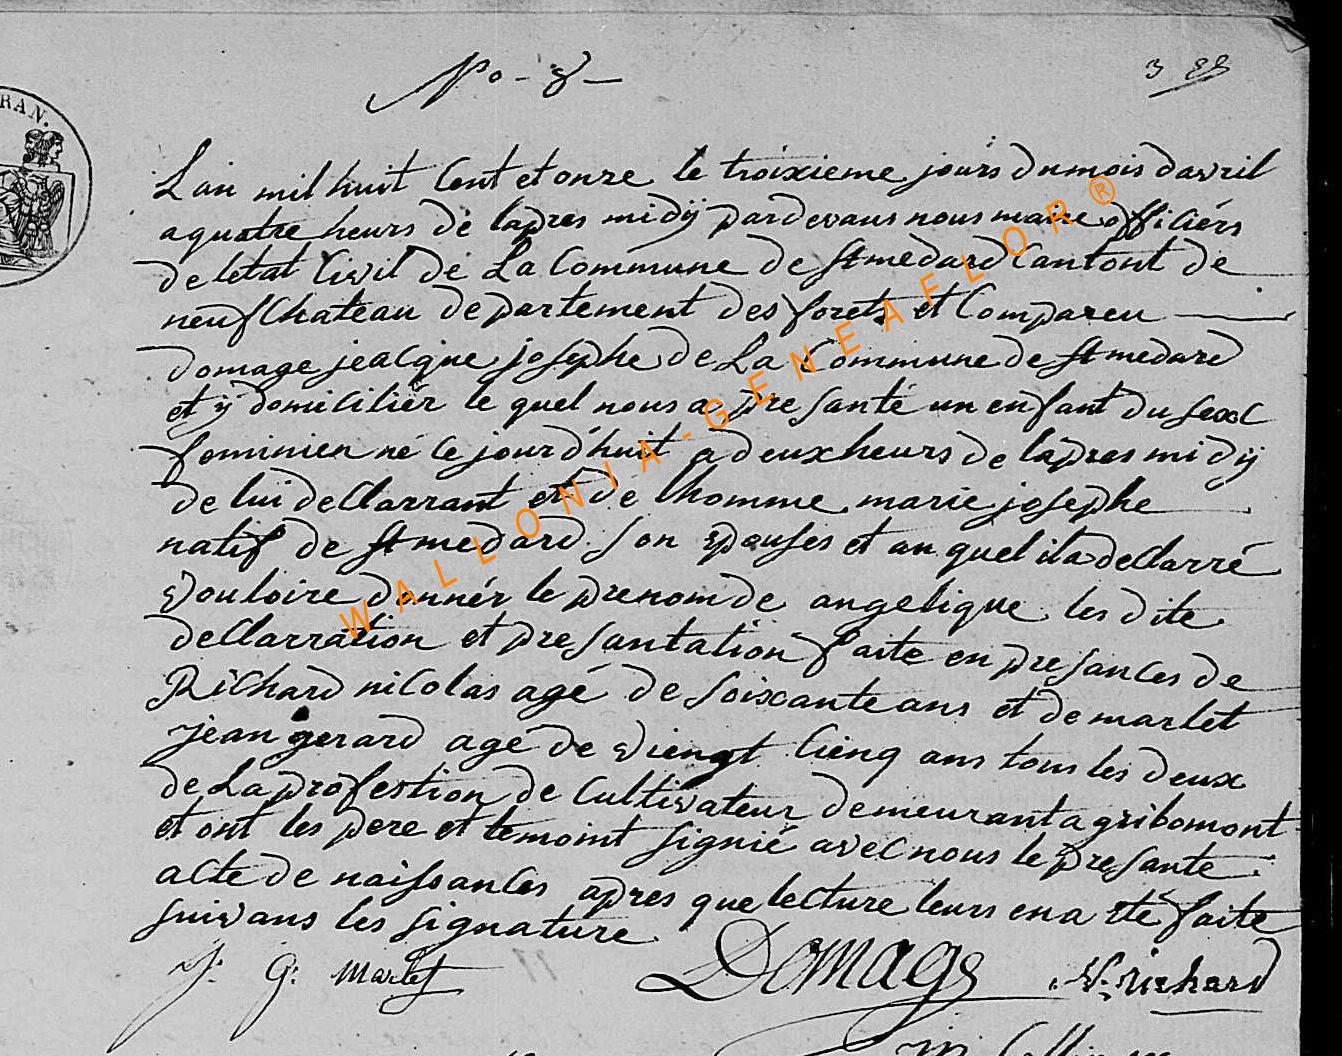 No - 8 -
3 88
RAN.
L'an mil huit Cent et onze le troixieme jours du mois d'avril
a quatre heurs de lapres midÿ pardevans nous maire officiérs
de letat Civil de La Commune de St medard Cantont de
neufChateau departement des forets et Compareu
domage jeacque josephe de La Commune de St medard
et ÿ domiciliér le quel nous a presanté un enfant du sexe
feminien né ce jourd'huit a deux heurs de lapres midÿ
de lui deClarrant et de lhomme marie josephe
natif de St medard son epouses et au quel il a deClarré
vouloire donnér le prenom de angelique les dite
deClarration et presantation faite en presances de
Richard nicolas agé de soixante ans et de marlet
jean gerard agé de viengt Cienq ans tous les deux
de La profestion de Cultivateur demeurant a gribomont
et ont les pere et temoint signié avec nous le presante
acte de naissances apres que lecture leurs en a eté faite
suivans les signature
J: G: Marlet Domage N: richard
WALLONIA-GENEAFLOR®